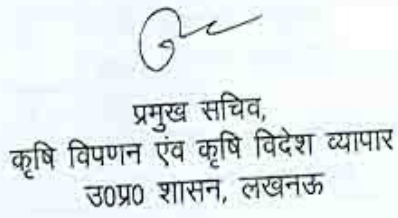 प्रमुख सचिव,
कृषि विपणन एंव कृषि विदेश व्यापार
उ0प्र0 शासन, लखनऊ